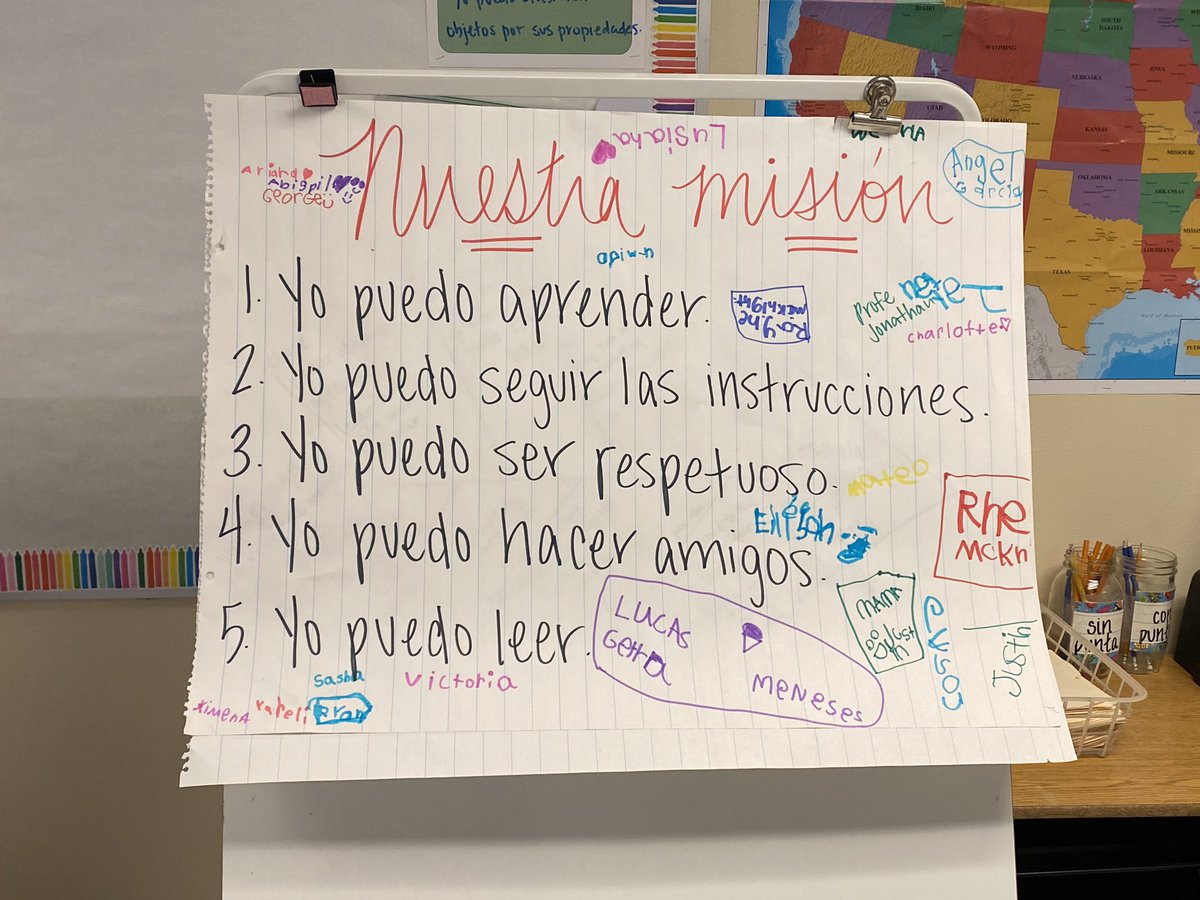 objetos por sus propiedades.
IDAHO
WYOMING
SOUTH DAKOTA
IOWA
NEBRASKA
UTAH
COLORADO
KANSAS
MISSOURI
OKLAHOMA
ARKANSAS
TEXAS
LOUISIANA
Gulf of Mexico
Lusiana
Nuestra misión
Ariana
Abigail
George
Angel
Garcia
1. Yo puedo aprender.
Rayne
mcknight
Profe
Jonathan
charlotte
2. Yo puedo seguir las instrucciones.
3. Yo puedo ser respetuoso.
mateo
4. Yo puedo hacer amigos.
Rhe
McKn
5. Yo puedo leer.
LUCAS
Getta
MeNeses
MAMA
Justin
Sasha
Victoria
XIMENA
sin
punta
con
punta